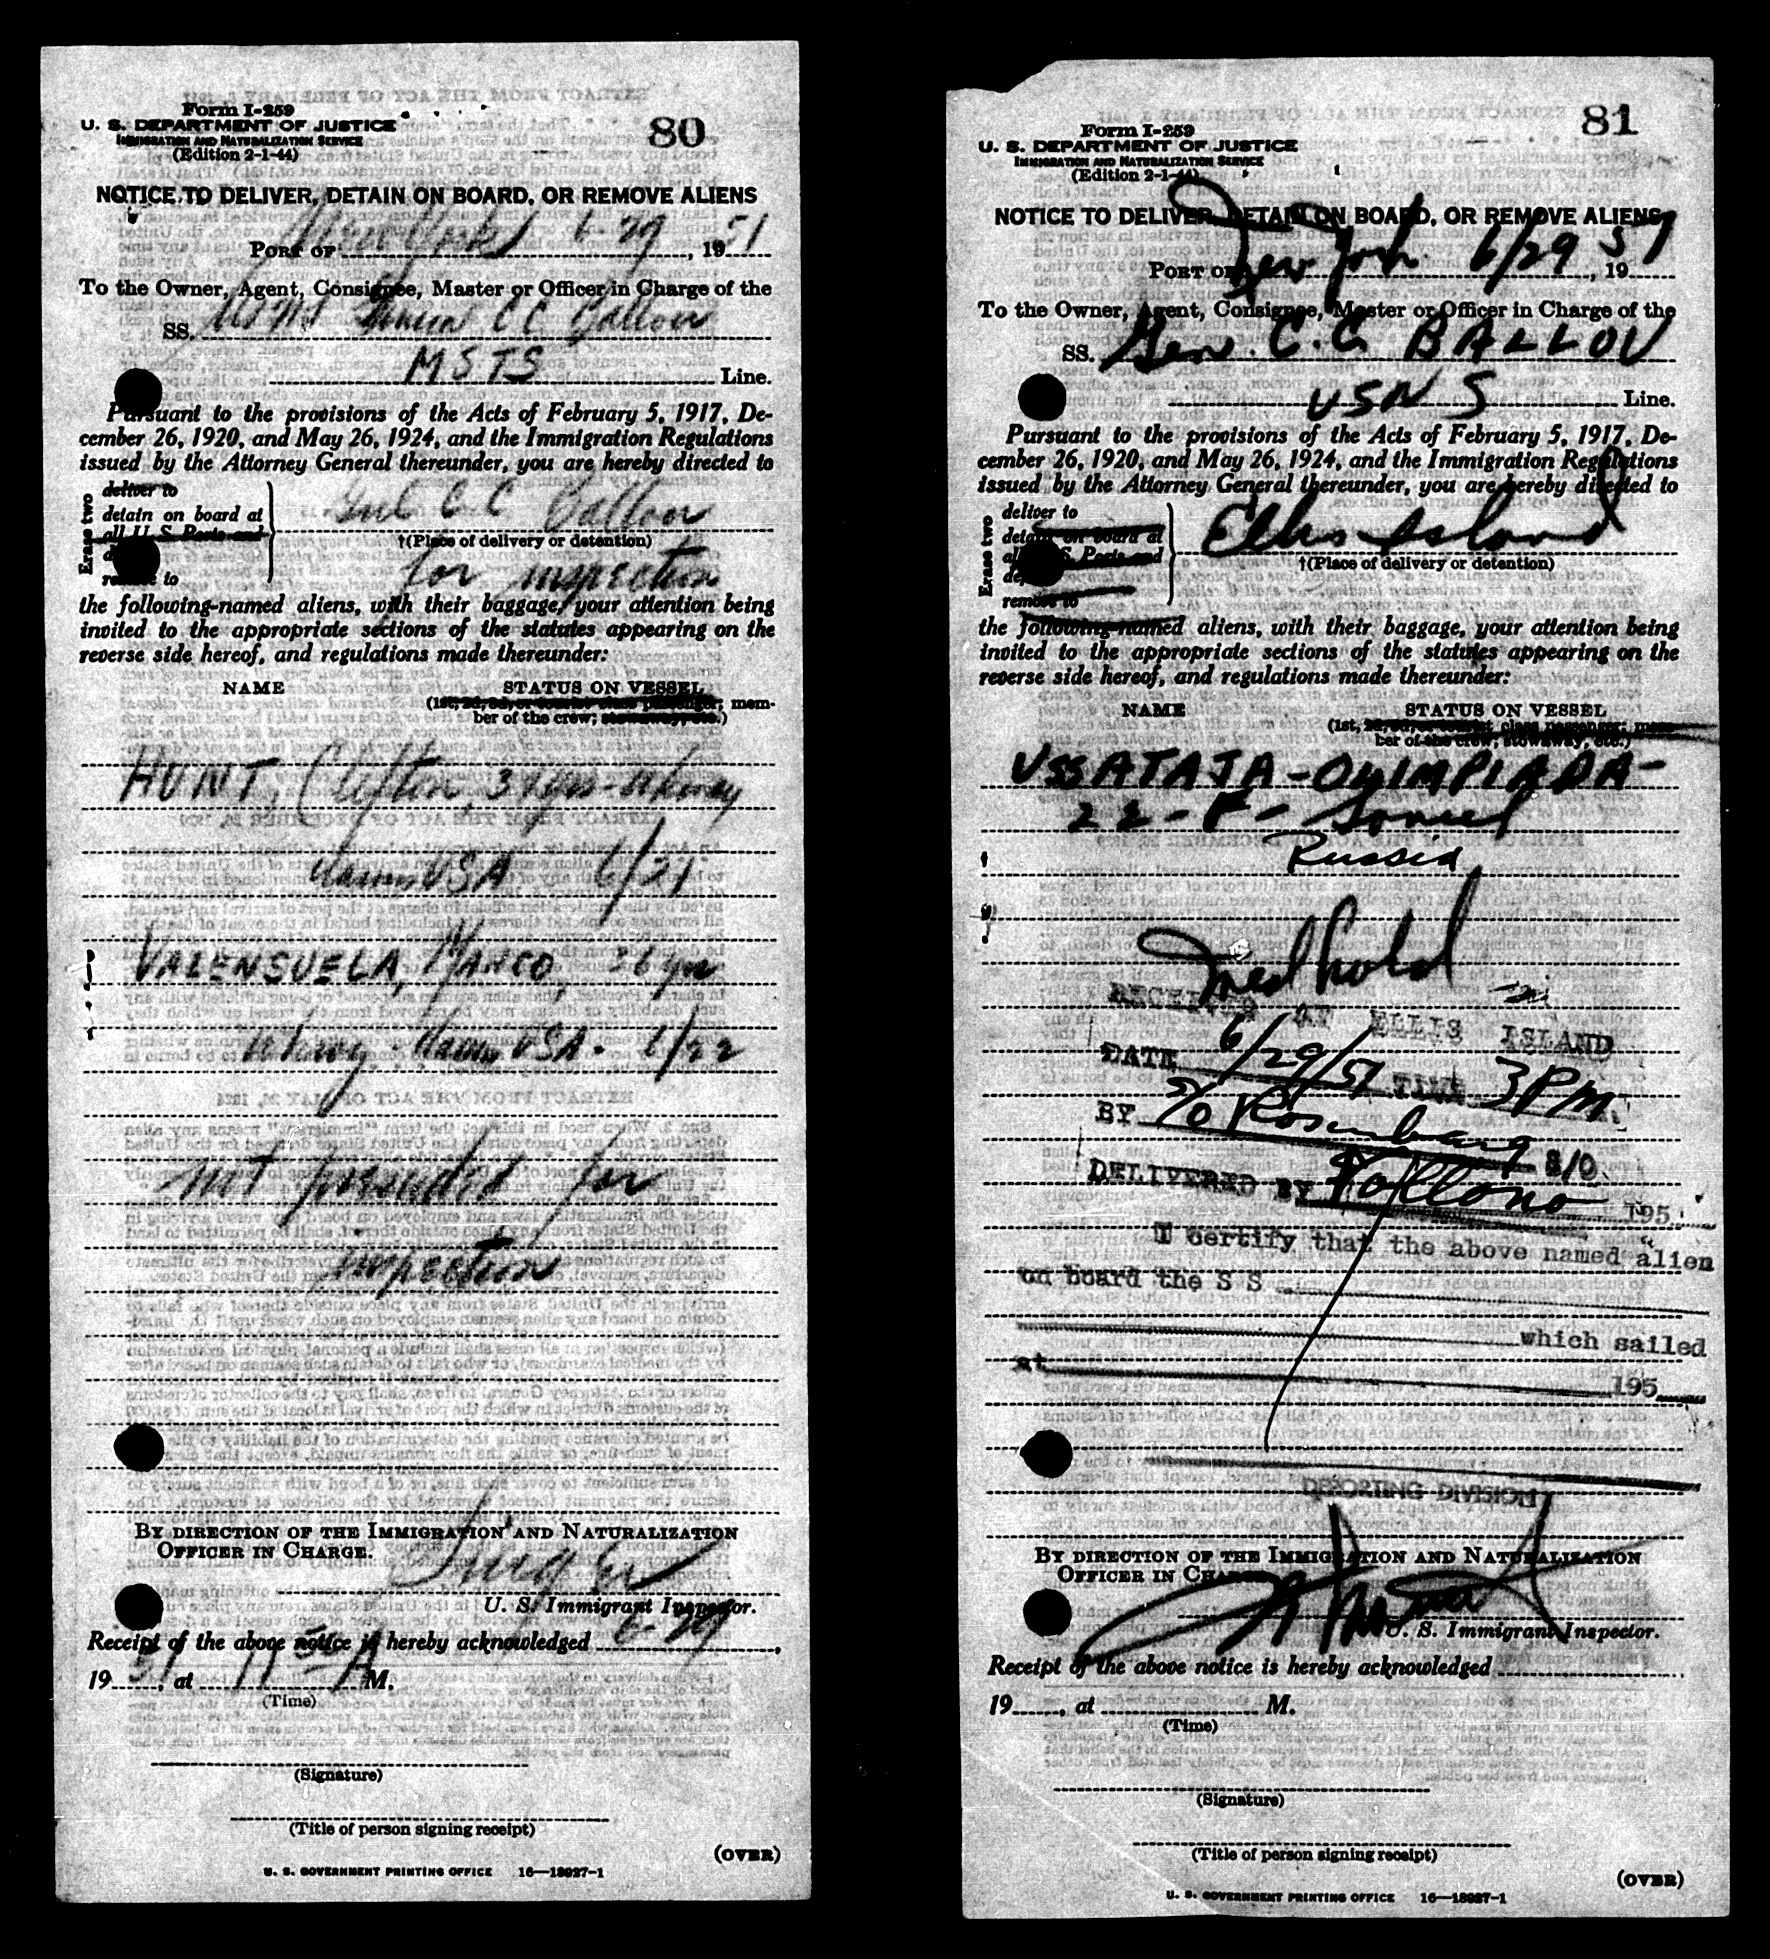 Form I-259
U. S. DEPARTMENT OF JUSTICE
IMMIGRATION AND NATURALIZATION SERVICE
(Edition 2-1-44)
80
NOTICE TO DELIVER, DETAIN ON BOARD, OR REMOVE ALIENS
PORT OF New York 6 29, 1951
To the Owner, Agent, Consignee, Master or Officer in Charge of the
SS. C C Ballou
MSTS Line.
Pursuant to the provisions of the Acts of February 5, 1917, De-
cember 26, 1920, and May 26, 1924, and the Immigration Regulations
issued by the Attorney General thereunder, you are hereby directed to
Erase two
deliver to
detain on board at
all U S Ports and
to
C C Ballou
†(Place of delivery or detention)
for inspection
the following-named aliens, with their baggage, your attention being
invited to the appropriate sections of the statutes appearing on the
reverse side hereof, and regulations made thereunder:
NAME STATUS ON VESSEL
(1st, 2d, 3d, or tourist class passenger; mem-
ber of the crew; stowaway, etc.)
HUNT, Clifton, 3
claims USA 6/27
VALENSUELA, MARCO,
claims USA. 6/22
not presented for
inspection
BY DIRECTION OF THE IMMIGRATION AND NATURALIZATION
OFFICER IN CHARGE.
U. S. Immigrant Inspector.
Receipt of the above notice is hereby acknowledged 6-29,
1951, at 11 50 A M.
(Time)
(Signature)
(Title of person signing receipt)
(OVER)
U. S. GOVERNMENT PRINTING OFFICE 16—18027-1
Form I-259
U. S. DEPARTMENT OF JUSTICE
IMMIGRATION AND NATURALIZATION SERVICE
(Edition 2-1-44)
81
NOTICE TO DELIVER, DETAIN ON BOARD, OR REMOVE ALIENS
PORT OF New York 6/29, 1951
To the Owner, Agent, Consignee, Master or Officer in Charge of the
SS. Gen. C. C. BALLOU
USNS Line.
Pursuant to the provisions of the Acts of February 5, 1917, De-
cember 26, 1920, and May 26, 1924, and the Immigration Regulations
issued by the Attorney General thereunder, you are hereby directed to
Erase two
deliver to
detain on board at
all U S Ports and
remove to
Ellis Island
†(Place of delivery or detention)
the following-named aliens, with their baggage, your attention being
invited to the appropriate sections of the statutes appearing on the
reverse side hereof, and regulations made thereunder:
NAME STATUS ON VESSEL
(1st, 2d, 3d, or tourist class passenger; mem-
ber of the crew; stowaway, etc.)
USSATAJA - OLIMPIADA -
22 - F - Soviet
Russia
Med hold
RECEIVED AT ELLIS ISLAND
DATE 6/29/51 TIME 3 PM.
BY S/O Rosenberg S/O
DELIVERED BY 195
I certify that the above named alien
on board the S S
which sailed
at 195
DEPORTING DIVISION
BY DIRECTION OF THE IMMIGRATION AND NATURALIZATION
OFFICER IN CHARGE.
U. S. Immigrant Inspector.
Receipt of the above notice is hereby acknowledged
19, at M.
(Time)
(Signature)
(Title of person signing receipt)
(OVER)
U. S. GOVERNMENT PRINTING OFFICE 16—18027-1